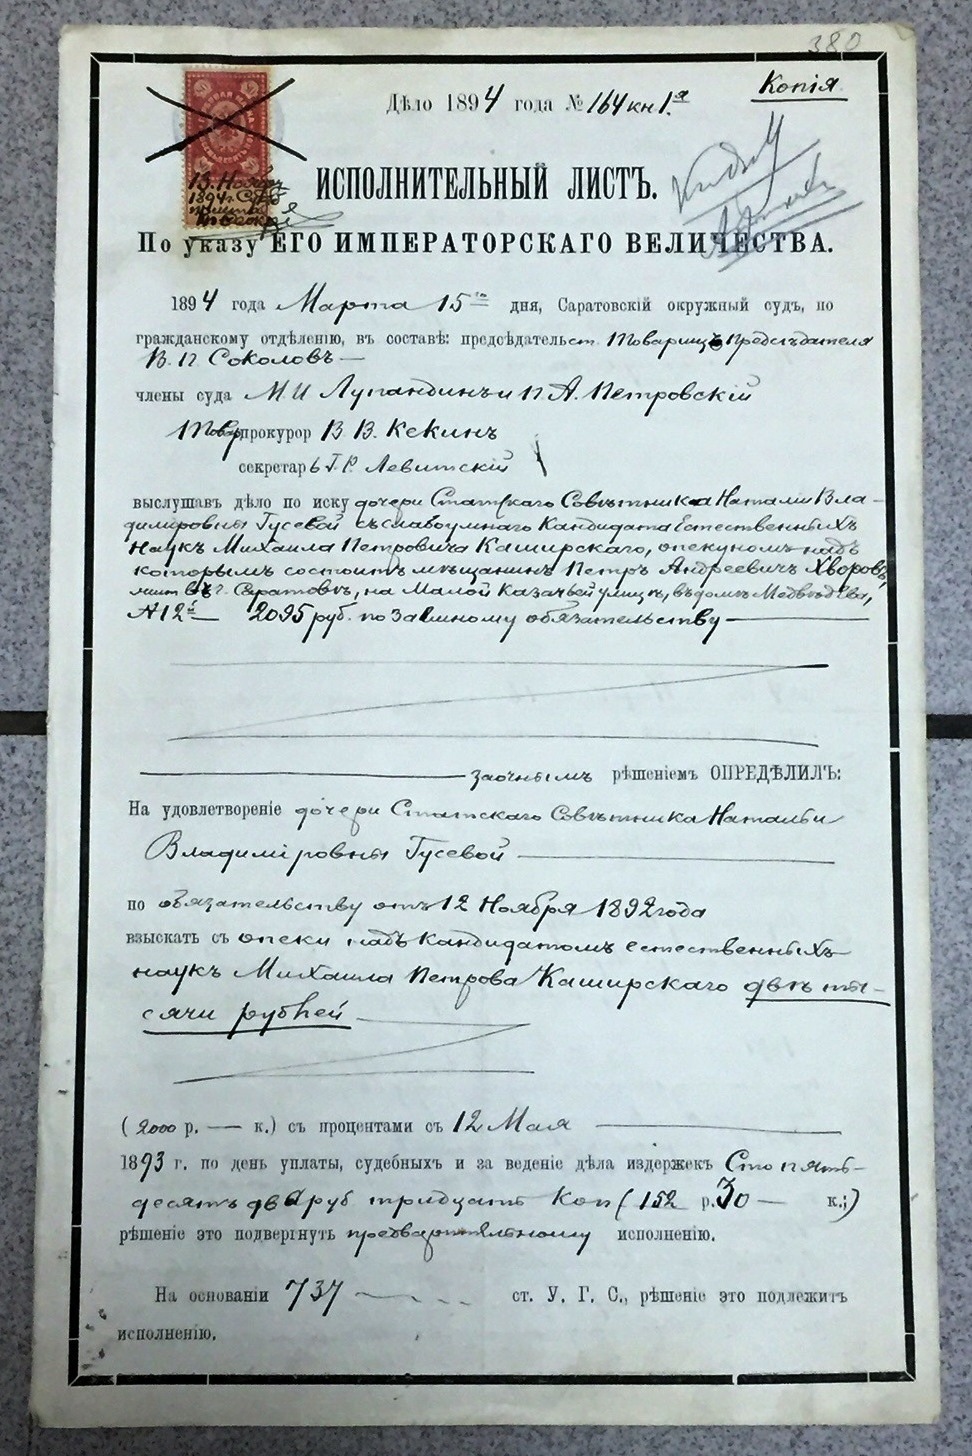 380
Копія
Дѣло 1894 года № 164 кн 1.я
13. Ноября
1894 г.
ИСПОЛНИТЕЛЬНЫЙ ЛИСТЪ.
По указу ЕГО ИМПЕРАТОРСКАГО ВЕЛИЧЕСТВА.
1894 года Марта 15 дня, Саратовскій окружный судъ, по
гражданскому отдѣленію, въ составѣ: предсѣдательст. Товарищъ Предсѣдателя
В. П. Соколовъ
члены суда М. И Лупандинъ и П. А. Петровскій
Товар прокурор В. В. Кекинъ
секретарь Г. Р. Левитскій
выслушав дѣло по иску дочери Статскаго Совѣтника Наталіи Вла-
диміровны Гусевой съ слабоумнаго Кандидата Естественныхъ
Наукъ Михаила Петровича Каширскаго, опекуномъ надъ
которымъ состоитъ мѣщанинъ Петръ Андреевичъ Хворовъ,
жит въ г. Саратовѣ, на Малой Казачьей улицѣ, въ домѣ Медвѣдева,
№ 12 2095 руб. по заемному обязательству
заочнымъ рѣшеніемъ ОПРЕДѢЛИЛЪ:
На удовлетвореніе дочери Статскаго Совѣтника Натальи
Владиміровны Гусевой
по обязательству отъ 12 Ноября 1892 года
взыскать съ опеки надъ Кандидатомъ естественныхъ
наукъ Михаила Петрова Каширскаго двѣ ты-
сячи рублей
(2000 р. — к.) съ процентами съ 12 Мая
1893 г. по день уплаты, судебныхъ и за веденіе дѣла издержек Сто пять-
десятъ два руб тридцать Коп (152 р. 30 — к.;)
рѣшеніе это подвергнуть предварительному исполненію.
На основаніи 737 ст. У. Г. С., рѣшеніе это подлежитъ
исполненію.